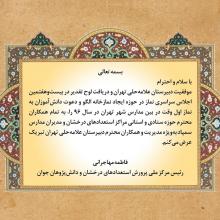 بسمه تعالی
با سلام و احترام
موفقیت دبیرستان علامه حلی تهران و دریافت لوح تقدیر در بیست و هفتمین
اجلاس سراسری نماز در حوزه ایجاد نمازخانه الگو و دعوت دانش‌آموزان به
نماز اول وقت در بین مدارس شهر تهران در سال ۹۶ را، به تمام همکاران
محترم حوزه ستادی و استانی مراکز استعدادهای درخشان و مدیران مدارس
سمپاد به ویژه مدیریت و همکاران محترم دبیرستان علامه حلی تهران تبریک
عرض می‌کنم.
فاطمه مهاجرانی
رئیس مرکز ملی پرورش استعدادهای درخشان و دانش‌پژوهان جوان